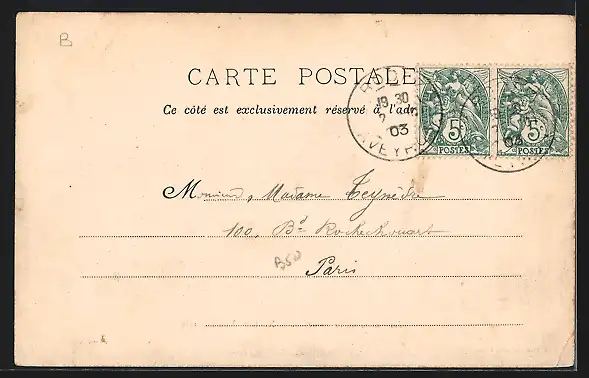 B
CARTE POSTALE
Ce côté est exclusivement réservé à l'adr
19 30
03
AVEYRON
5
POSTES
5
POSTES
03
Monsieur, Madame Teyssèdre
100, Bd Rochechouart
B50
Paris